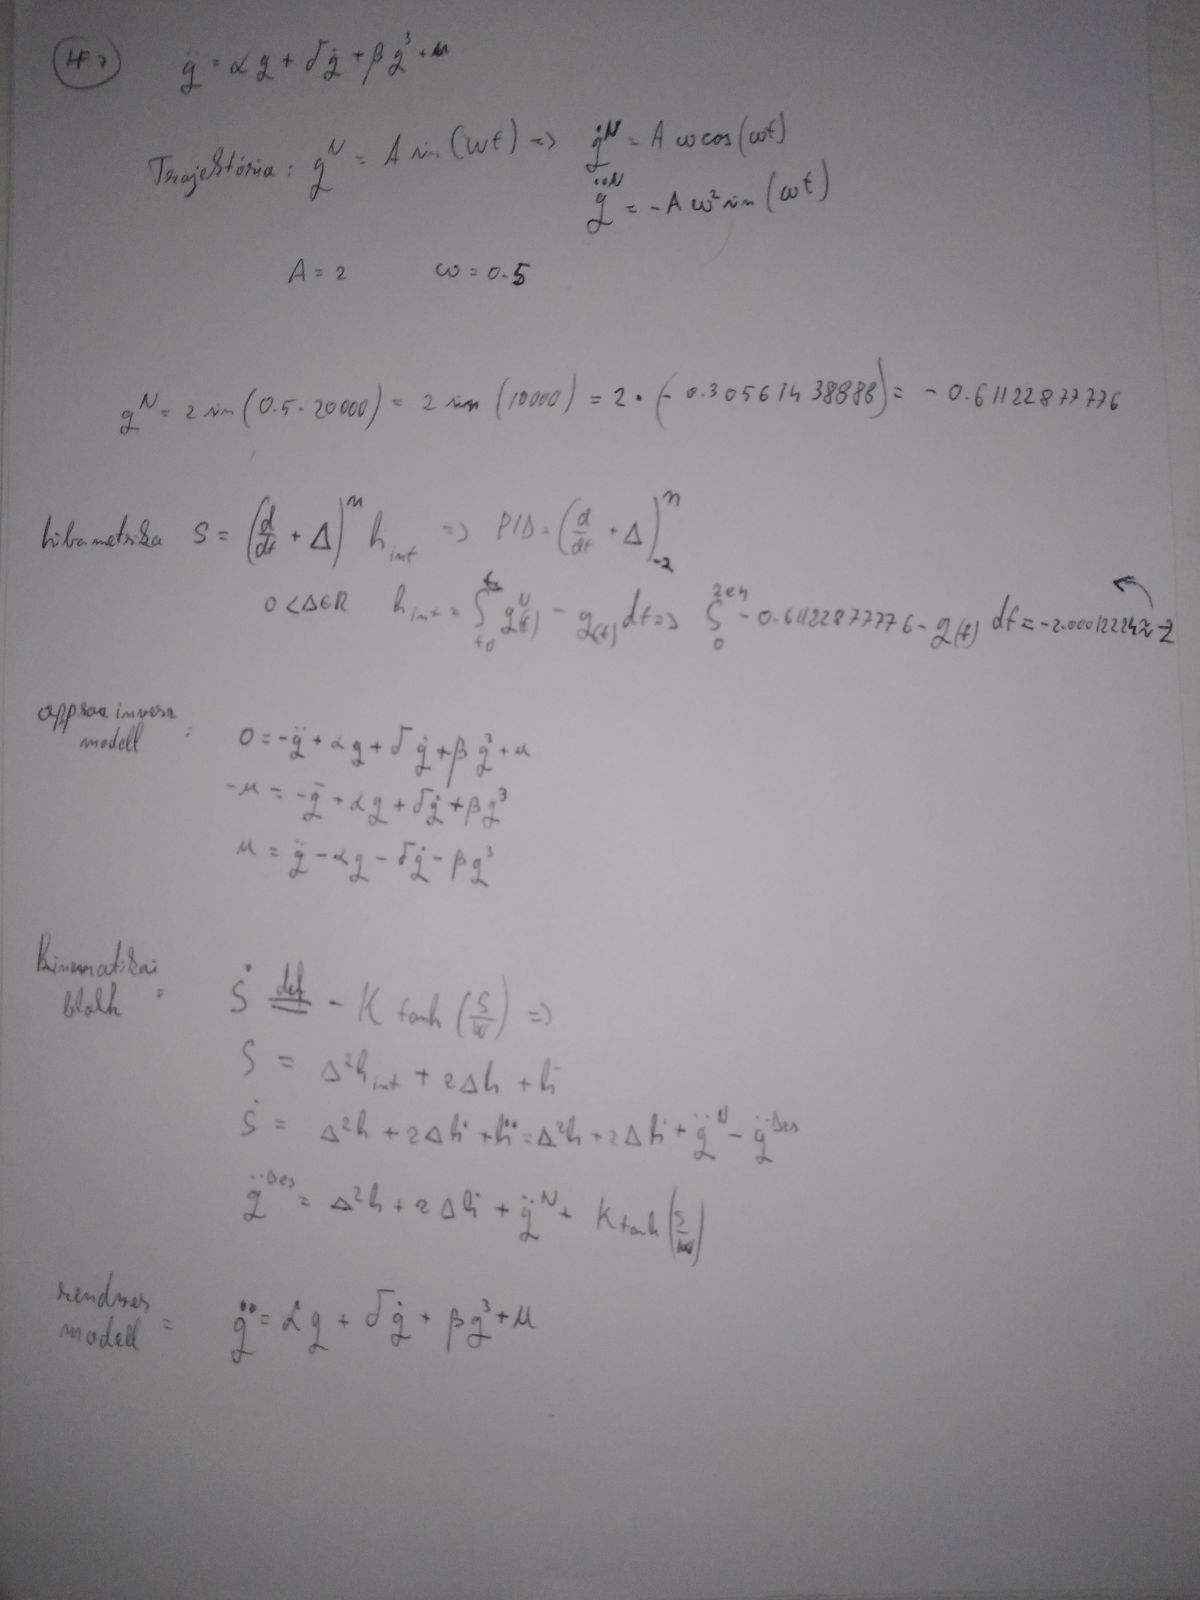 HF7
q̈ = αq + δq̇ + βq³ + u
Trajektória: q^N = A sin(ωt) => q̇^N = Aω cos(ωt)
q̈^N = -Aω² sin(ωt)
A = 2 ω = 0.5
q^N = 2 sin(0.5·20000) = 2 sin(10000) = 2·(-0.30561438888) = -0.61122877776
hibametrika S = (d/dt + Δ)^n h_int => PID = (d/dt + Δ)^n_-2
0<Δ∈R h_int = ∫_t0 q^N(t) - q(t) dt => ∫_0^2e4 -0.61122877776 - q(t) dt = -2.00012224 ≈ -2
approx inverz
modell : 0 = -q̈ + αq + δq̇ + βq³ + u
-u = -q̈ + αq + δq̇ + βq³
u = q̈ - αq - δq̇ - βq³
Kinematikai
blokk = Ṡ def= -K tanh(S/w) =>
S = Δ²h_int + 2Δh + ḣ
Ṡ = Δ²h + 2Δḣ + ḧ = Δ²h + 2Δḣ + q̈^N - q̈^Des
q̈^Des = Δ²h + 2Δḣ + q̈^N + K tanh(S/w)
rendszer
modell = q̈ = αq + δq̇ + βq³ + u